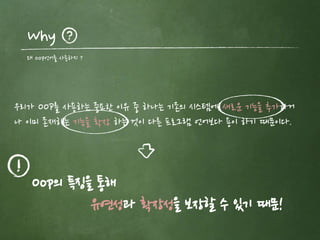 Why ?
왜 OOP언어를 사용하지 ?
우리가 OOP를 사용하는 중요한 이유 중 하나는 기존의 시스템에 새로운 기능을 추가하거
나 이미 존재하는 기능을 확장 하는 것이 다른 프로그램 언어보다 용이 하기 때문이다.
!
OOP의 특징을 통해
유연성과 확장성을 보장할 수 있기 때문!